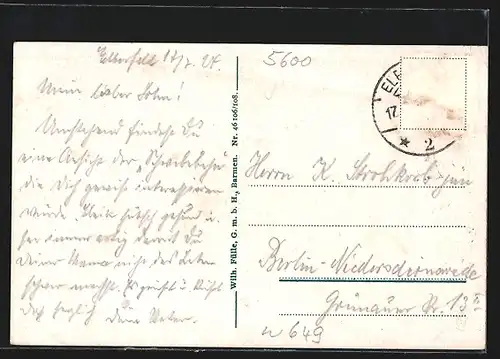 Elberfeld 17/7. 24.
5600
Mein lieber Sohn!
Umstehend findest Du
eine Ansicht der "Schwebebahn"
die Dich gewiss interessieren
würde. Bleib hübsch gesund u.
sei immer artig damit Du
Deiner Mama nicht das Leben
schwer machst. Es grüßt u. küßt
Dich herzlich Dein Vater.
Wilh. Fülle, G. m. b. H., Barmen. Nr. 46 106/108.
ELB
17.
* 2
Herrn K. Strohkorb jun
Berlin-Niederschöneweide
Grünauer Str. 13 II
n 649